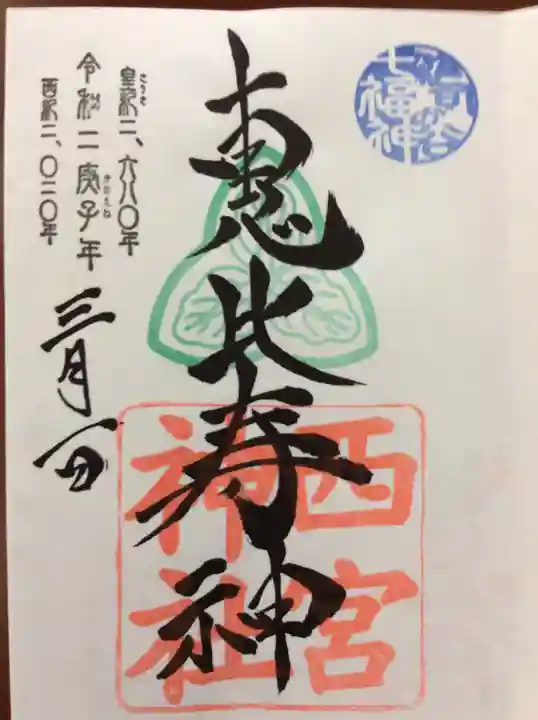 七福神
惠比寿神
西宮
神社
皇紀二、六八〇年
こうき
令和二庚子年
かのえね
西紀二、〇二〇年
三月一日